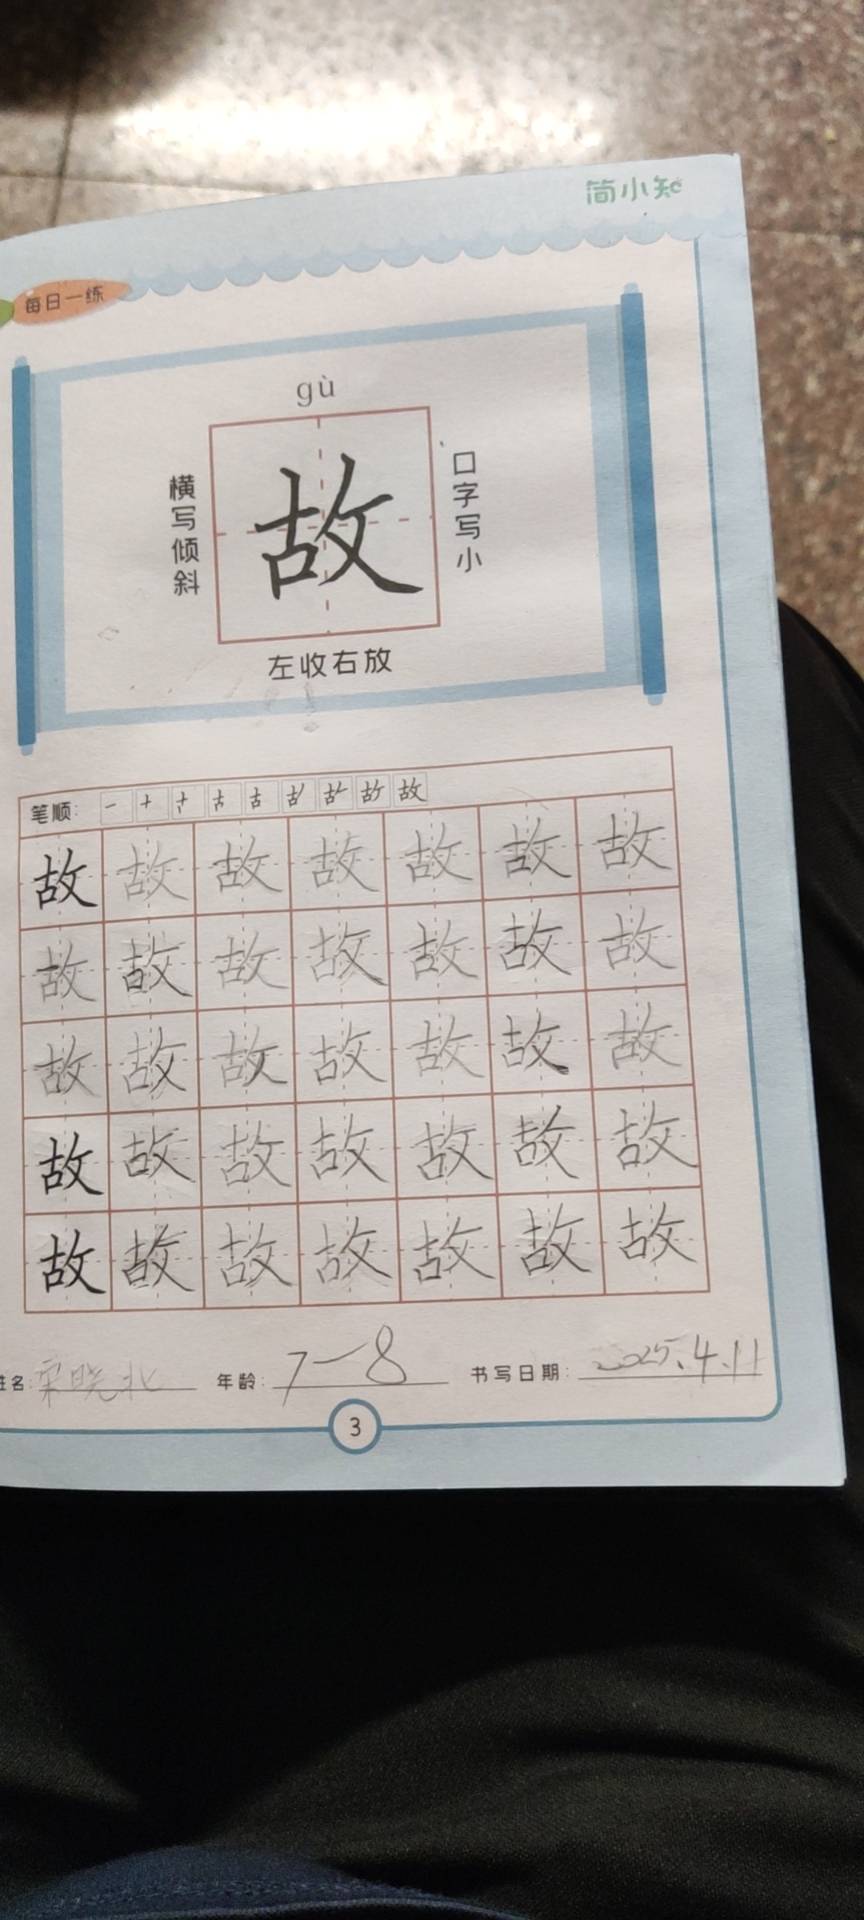 简小知
每日一练
gù
横写倾斜
故
口字写小
左收右放
笔顺:
故 故 故 故 故 故 故
故 故 故 故 故 故 故
故 故 故 故 故 故 故
故 故 故 故 故 故 故
故 故 故 故 故 故 故
姓名: 宋晓北 年龄: 7-8 书写日期: 2025.4.11
3